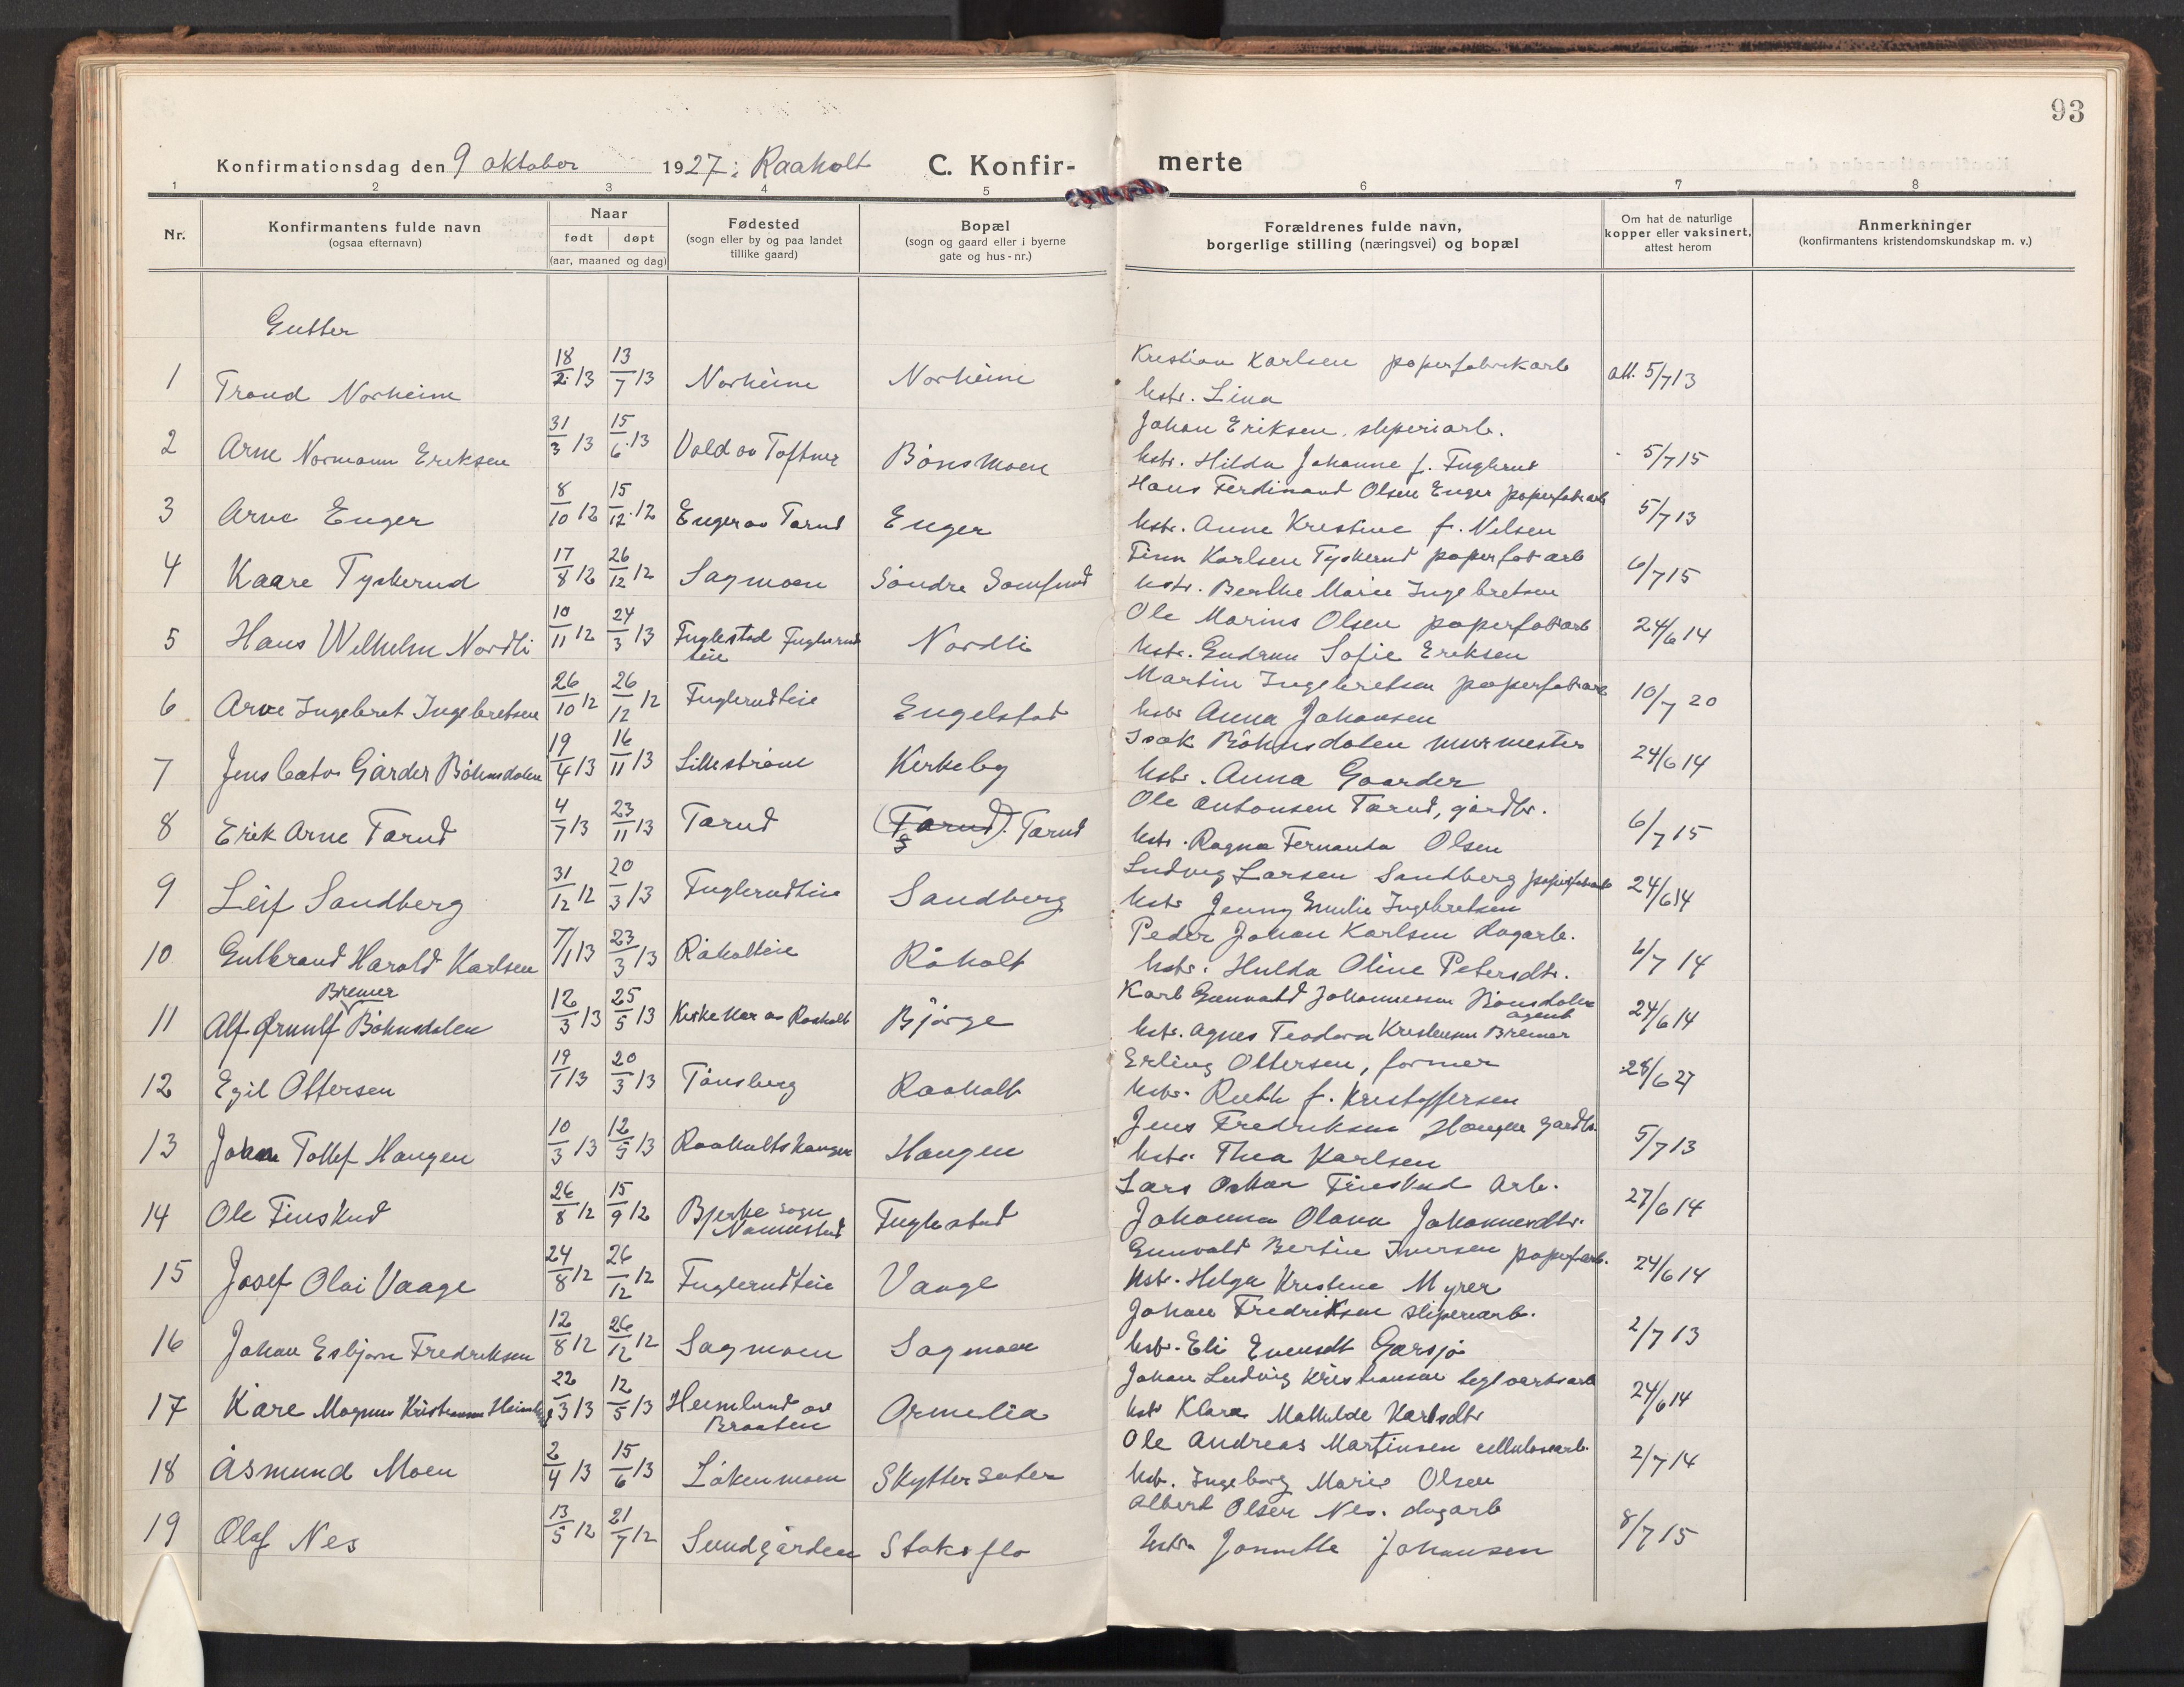 93
Konfirmationsdag den 9 oktober 1927: Raaholt C. Konfir- merte
1 2 3 4 5 6 7 8
Nr. Konfirmantens fulde navn (ogsaa efternavn) Naar født døpt (aar, maaned og dag) Fødested (sogn eller by og paa landet tillike gaard) Bopæl (sogn og gaard eller i byerne gate og hus-nr.) Forældrenes fulde navn, borgerlige stilling (næringsvei) og bopæl Om hat de naturlige kopper eller vaksinert, attest herom Anmerkninger (konfirmantens kristendomskundskap m. v.)
Gutter
1 Trond Norheim 18/2 13 13/7 13 Norheim Norheim Kristian Karlsen papirfabrikarb att. 5/7 13
hstr. Lina
2 Arne Normann Eriksen 31/3 13 15/6 13 Vold av Toftner Bønsmoen Johan Eriksen, sliperiarb. 5/7 15
hstr. Hilda Johanne f. Fuglerud
3 Arve Enger 8/10 12 15/12 12 Enger av Tarud Enger Hans Ferdinand Olsen Enger papirfabrarb 5/7 13
hstr. Anne Kristine f. Nilsen
4 Kaare Tyskerud 17/8 12 26/12 12 Sagmoen Søndre Finn Karlsen Tyskerud papirfab arb 6/7 15
hstr. Berthe Marie Ingebretsen
5 Hans Wilhelm Nordli 10/11 12 24/3 13 Fuglestad Fuglerud eie Nordli Ole Marius Olsen papirfabarb 24/6 14
hstr. Gudrun Sofie Eriksen
6 Arve Ingebret Ingebretsen 26/10 12 26/12 12 Fuglerudeie Engelstad Martin Ingebretsen papirfabarb 10/7 20
hstr Anna Johansen
7 Jens Cato Gårder Bøhnsdalen 19/4 13 16/11 13 Lillestrøm Kirkeby Isak Bøhnsdalen murmester 24/6 14
hstr. Anna Gaarder
8 Erik Arne Tarud 4/7 13 23/11 13 Tarud (Tarud). Tarud Ole Antonsen Tarud, gårdbr. 6/7 15
hstr. Ragna Fernanda Olsen
9 Leif Sandberg 31/12 12 20/3 13 Fuglerudeie Sandberg Ludvig Larsen Sandberg papirfabarb 24/6 14
hstr Jenny Emilie Ingebretsen
10 Gulbrand Harald Karlsen 7/1 13 23/3 13 Råholteie Råholt Peder Johan Karlsen dagarb. 6/7 14
hstr. Hulda Oline Petersdtr.
11 Alf Ørnulf Bremer Bøhnsdalen 12/3 13 25/5 13 Kirkeker av Raaholt Bjørge Karl Gunvald Johannesen Bønsdalen agent 24/6 14
hstr. Agnes Teodora Kristensen Bremer
12 Egil Ottersen 19/1 13 20/3 13 Tønsberg Raaholt Erling Ottersen, former 28/6 27
hstr. Ruth f. Kristoffersen
13 Johan Tollef Haugen 10/3 13 12/5 13 Raaholtshaugen Haugen Jens Fredriksen Haugen gaardbr. 5/7 13
hstr. Thea Karlsen
14 Ole Finskud 26/8 12 15/9 12 Bjerke sogn Nannestad Fuglestad Lars Oskar Finskud arb. 27/6 14
Johanna Olava Johannesdtr.
15 Josef Olai Vaage 24/8 12 26/12 12 Fuglerudeie Vaage Gunvald Bertin Iversen papirfarb. 24/6 14
hstr. Helga Kristine Myrer
16 Johan Esbjørn Fredriksen 12/8 12 26/12 12 Sagmoen Sagmoen Johan Fredriksen sliperiarb. 2/7 13
hstr. Eli Evensdt Garsjø
17 Kåre Magnus Kristiansen 22/3 13 12/5 13 Heimlund av Braaten Ormelia Johan Ludvig Kristiansen teglverksarb 24/6 14
hstr Klara Mathilde Karlsdtr
18 Åsmund Moen 2/4 13 15/6 13 Løkenmoen Skyttersæter Ole Andreas Martinsen cellulosearb. 2/7 14
hstr. Ingeborg Marie Olsen
19 Olaf Nes 13/5 12 21/7 12 Sundgården Stoksflo Albert Olsen Nes. dagarb 8/7 15
hstr. Jannette Johansen